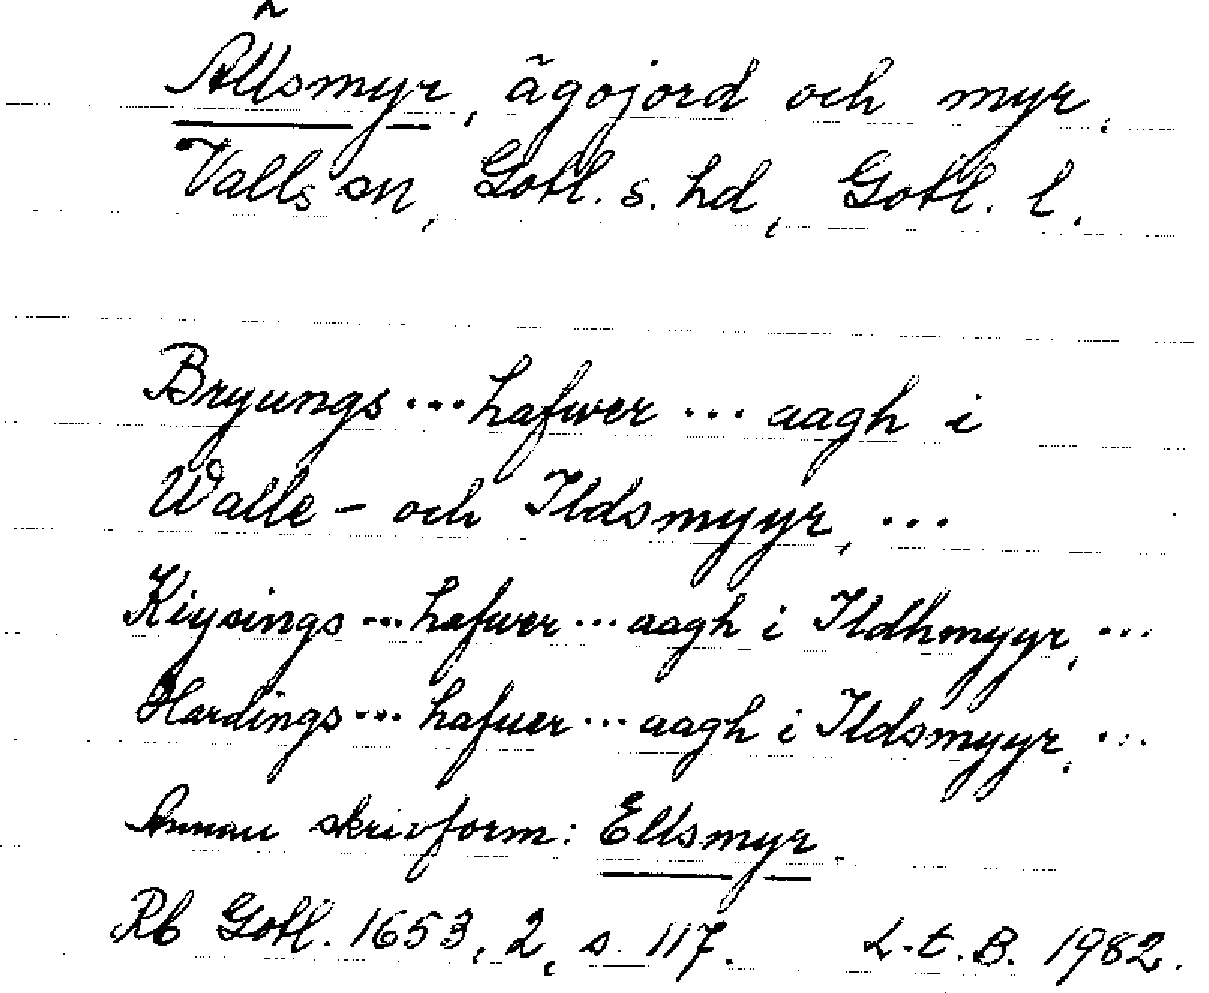 Ällsmyr, ägojord och myr,
Valls sn, Gotl. s. hd, Gotl. l.
Bryungs ... hafwer ... aagh i
Walle- och Ildsmyyr, ...
Kiysings ... hafwer ... aagh i Ildhmyyr, ...
Hardings ... hafuer ... aagh i Ildsmyyr, ...
Annan skrivform: Ellsmyr.
Rb Gotl. 1653, 2, s. 117. L.t.B. 1982.